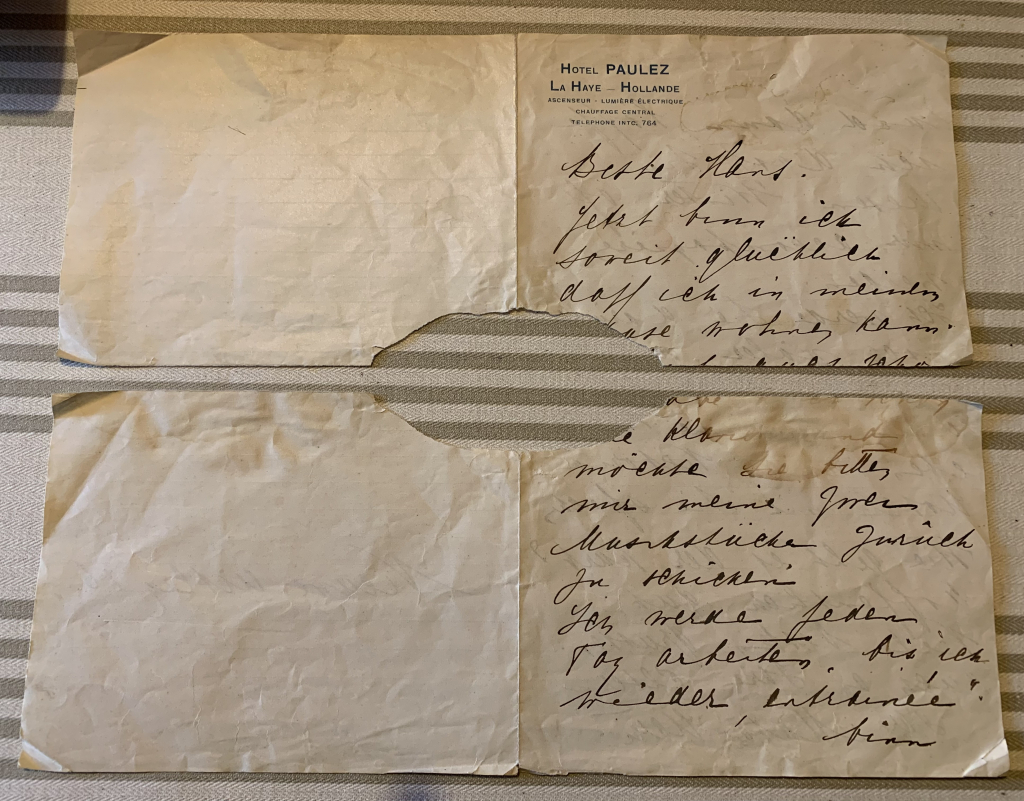 HOTEL PAULEZ
LA HAYE — HOLLANDE
ASCENSEUR - LUMIÈRE ÉLECTRIQUE
CHAUFFAGE CENTRAL
TELEPHONE INTC. 764
Beste Hans.
Jetzt binn ich
soweit glücklich
daß ich in meinem
wohnen kann.
möchte Sie bitten
mir meine zwei
Musikstücke zurück
zu schicken
Ich werde jeden
Tag arbeiten, bis ich
wieder „entrainée“
binn